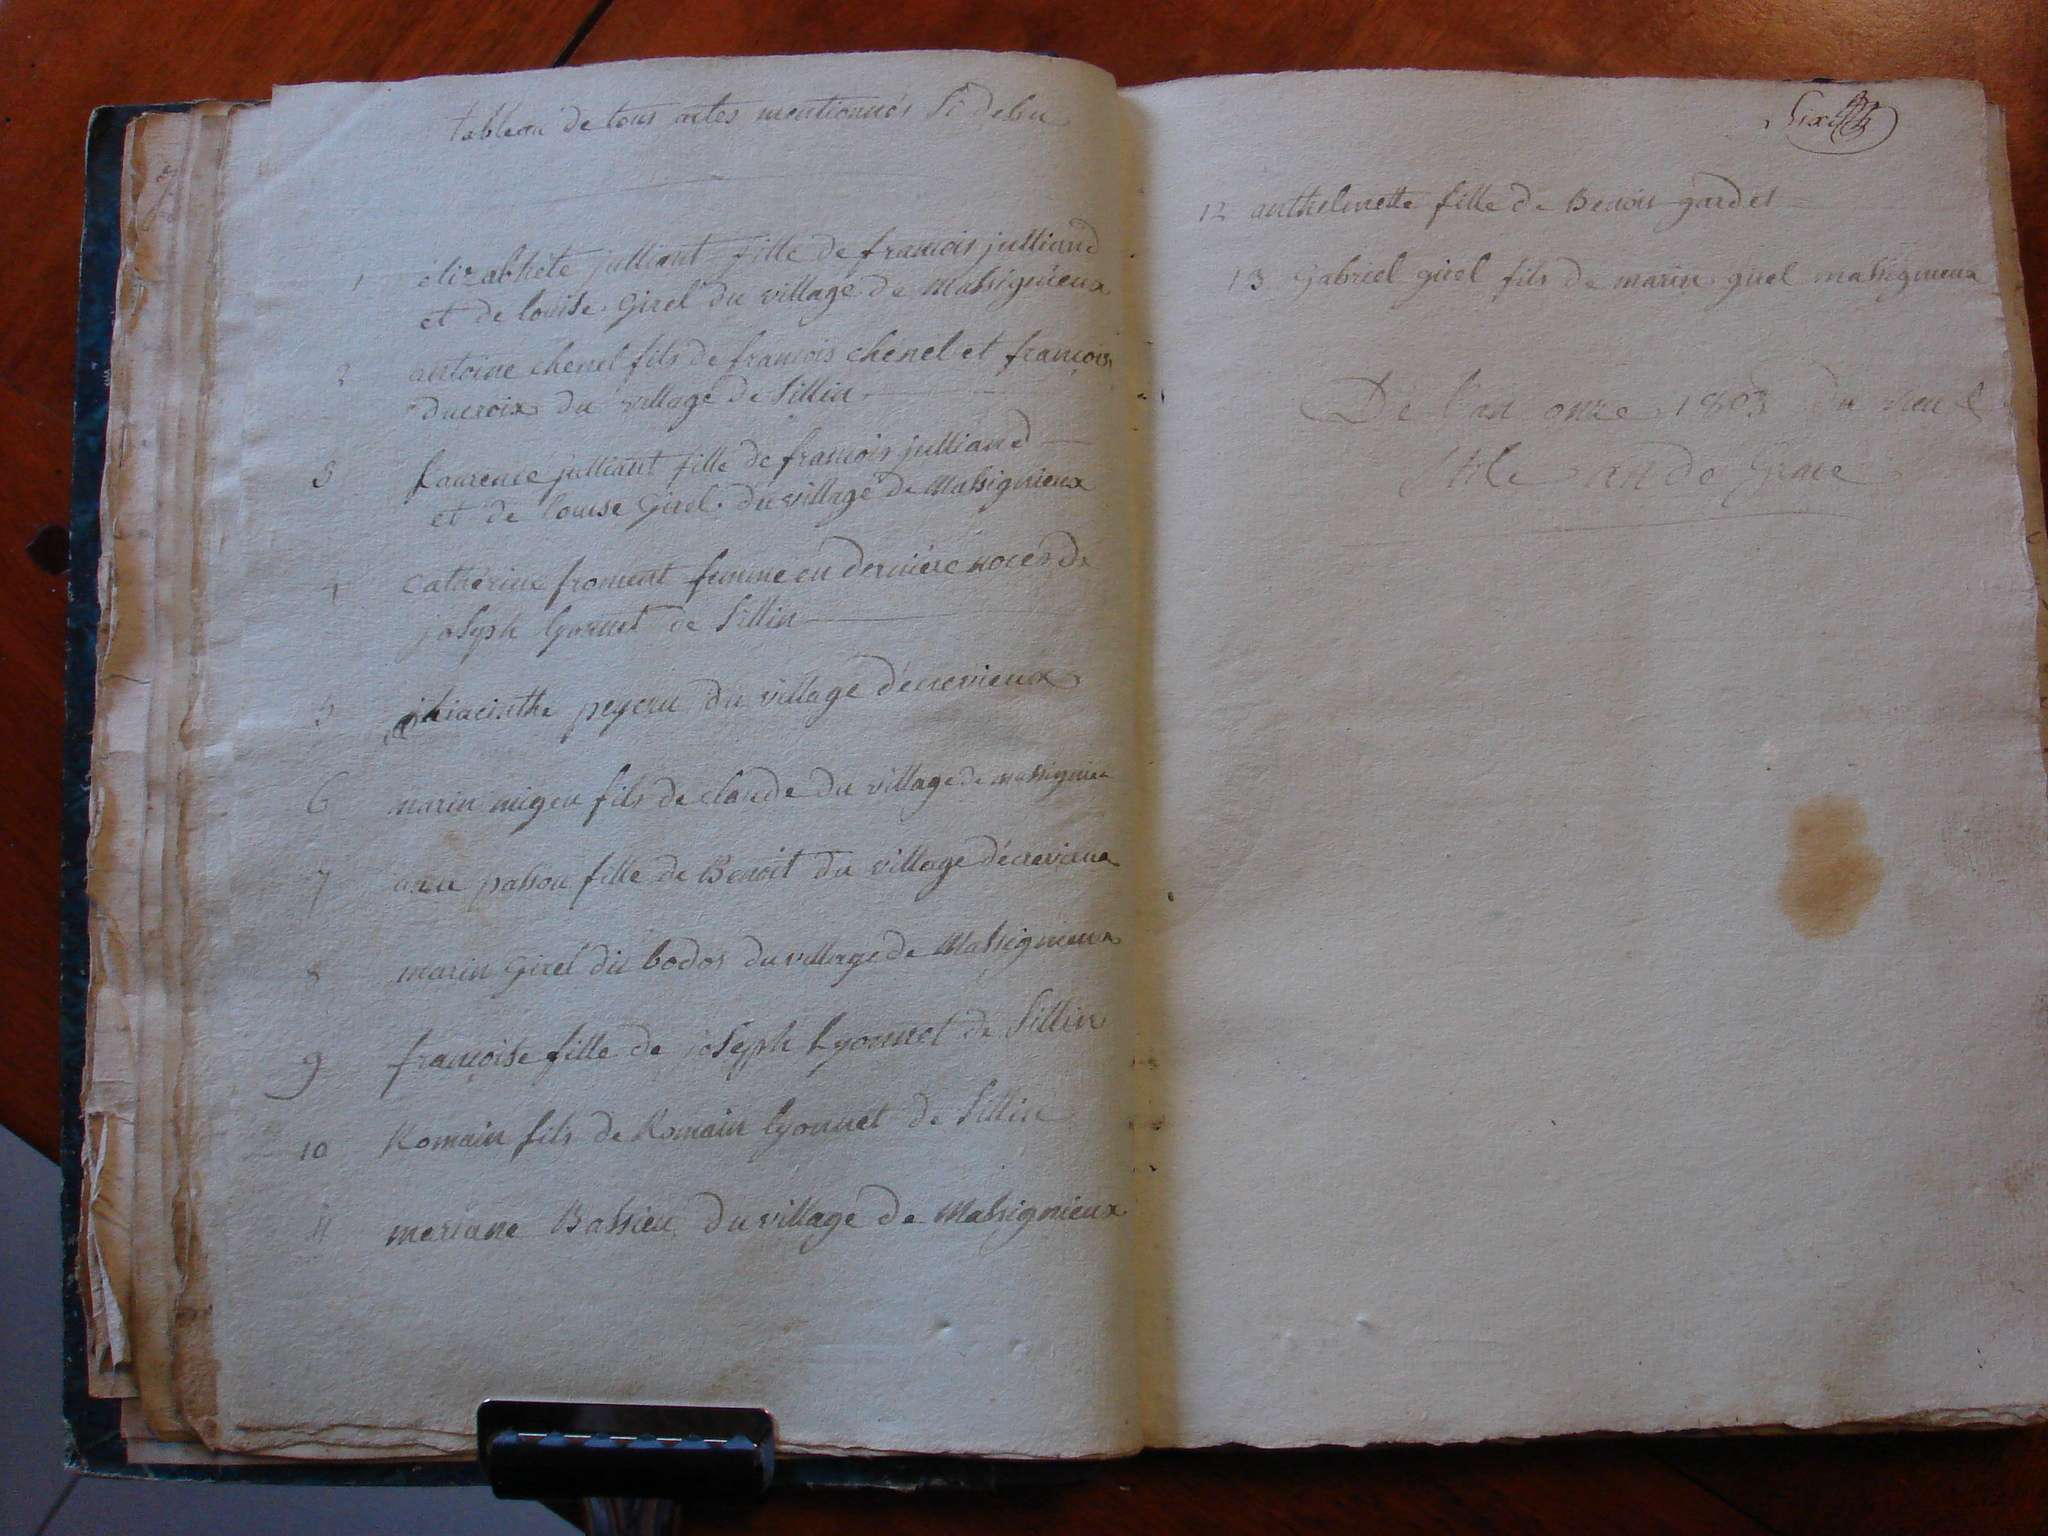 tableau de tous actes mentionnés Si debu
1 élizabhète julliant fille de francois julliand
et de louise Girel du village de Massignieux
2 antoine chenel fils de francois chenel et françois
ducroix du village de Sillin
3 Laurence julliant fille de francois julliand
et de louise Girel du village de Massignieux
4 Cathérine froment femme en derniére noces de
joseph lyonnet de Sillin
5 hiacinthe peyeru du village décrevieux
6 marin migeu fils de claude du village de massignieu
7 anne passou fille de Benoit du village décrevieux
8 marin Girel dit bodor du village de Massignieux
9 françoise fille de joseph Lyonnet de Sillin
10 Romain fils de Romain lyonnet de Sillin
11 meriane Bassieu du village de Massignieux
12 anthelmette fille de Benois gardet
13 Gabriel girel fils de marin girel massignieux
De l'an onze 1803 du vieu
Stile an de Grace